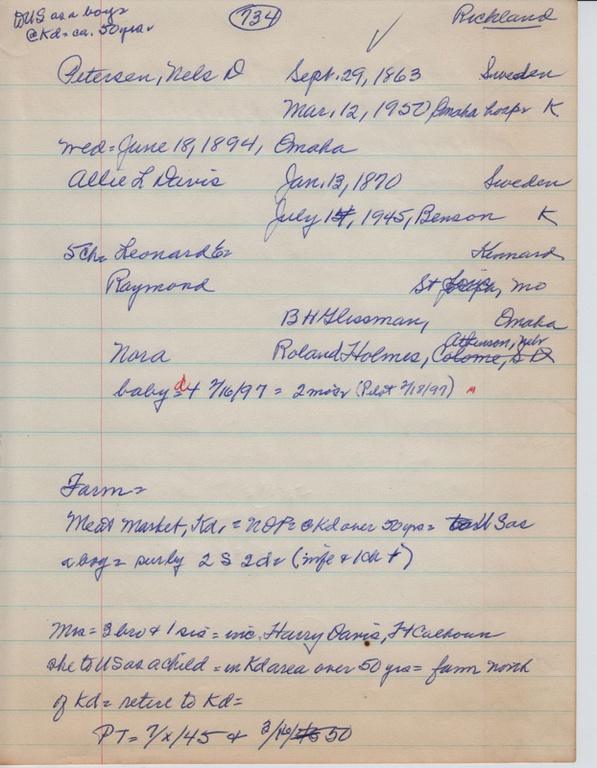 to US as a boy=
@Kd= ca. 50yrs=
734
Richland
Petersen, Nels D Sept. 29, 1863 Sweden
Mar. 12, 1950 Omaha hosp= K
wed= June 18, 1894, Omaha
Allie L Davis Jan. 13, 1870 Sweden
July 1, 1945, Benson K
5ch= Leonard E= Kennard
Raymond St, Mo
B H Glissman, Omaha
Atkinson, Nebr
Nora Roland Holmes, Colome, S D
baby d 7/16/97 = 2mos= (Pilot 7/18/97)
Farm=
Meat Market, Kd, = NDP= @Kd over 50yrs= to US as
a boy= surby 2 S 2d= (wife & 1ch †)
Mrs= 3 bro & 1 sis= inc. Harry Davis, Ft Calhoun
she to US as a child= in Kd area over 50 yrs= farm north
of Kd= retire to Kd=
PT= 7/x/45 & 3/16/50